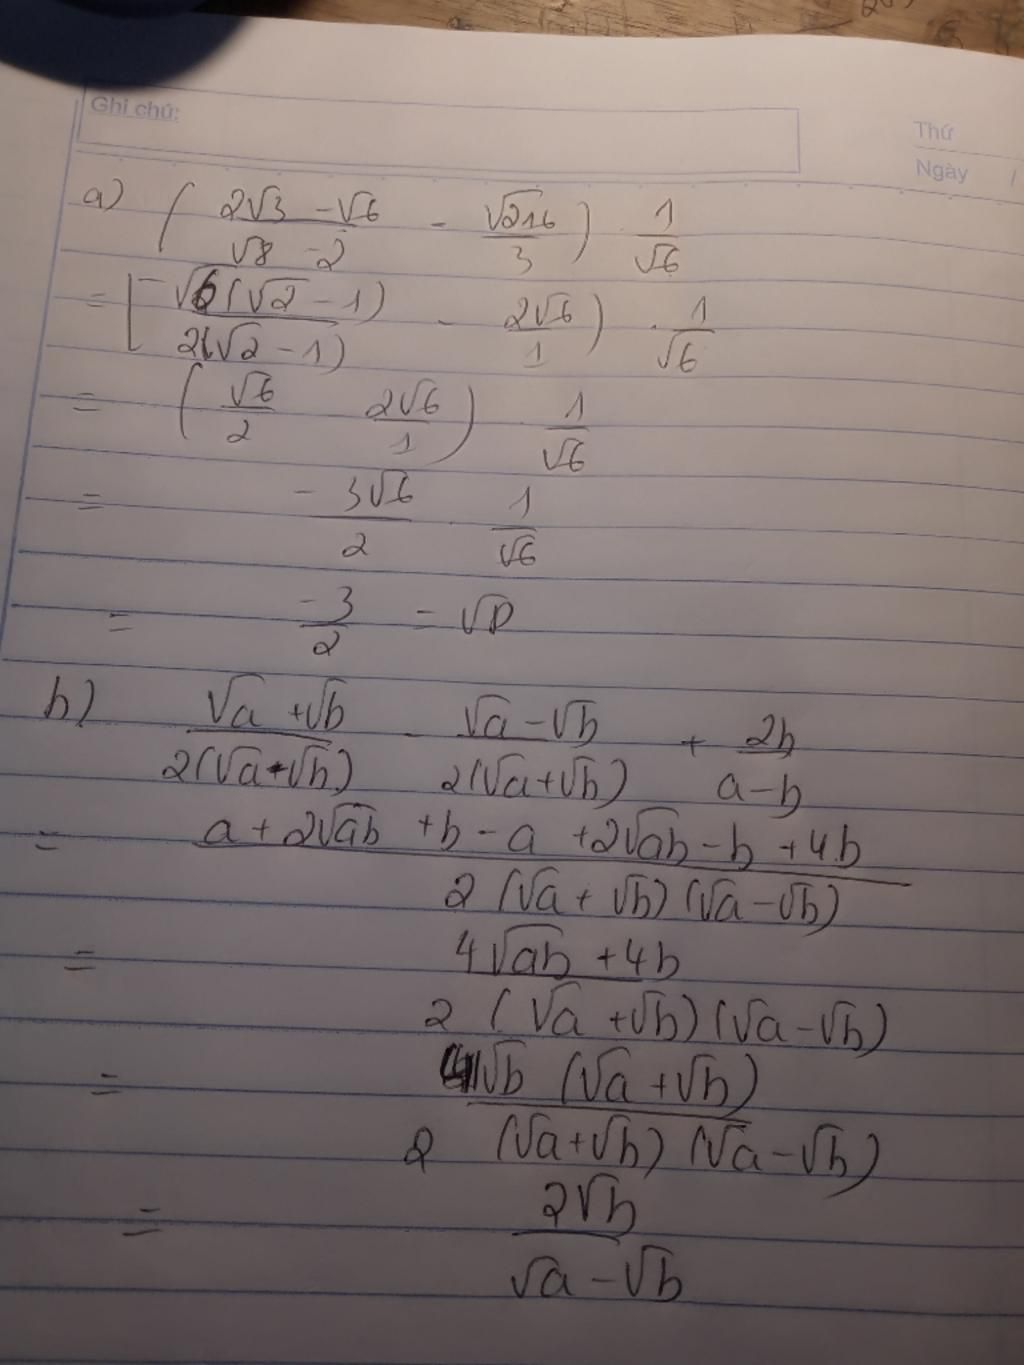 Ghi chú:
Thứ
Ngày /
a) ( (2√3 - √6)/(√8 - 2) - √216/3 ) · 1/√6
= [ √6(√2 - 1)/2(√2 - 1) - 2√6/1 ) · 1/√6
= ( √6/2 2√6/1 ) · 1/√6
= -3√6/2 · 1/√6
= -3/2 = √P
b) (√a + √b)/2(√a - √b) - (√a - √b)/2(√a + √b) + 2b/(a - b)
= (a + 2√ab + b - a + 2√ab - b + 4b)/2(√a + √b)(√a - √b)
= (4√ab + 4b)/2(√a + √b)(√a - √b)
= 4√b(√a + √b)/2(√a + √b)(√a - √b)
= 2√b/(√a - √b)